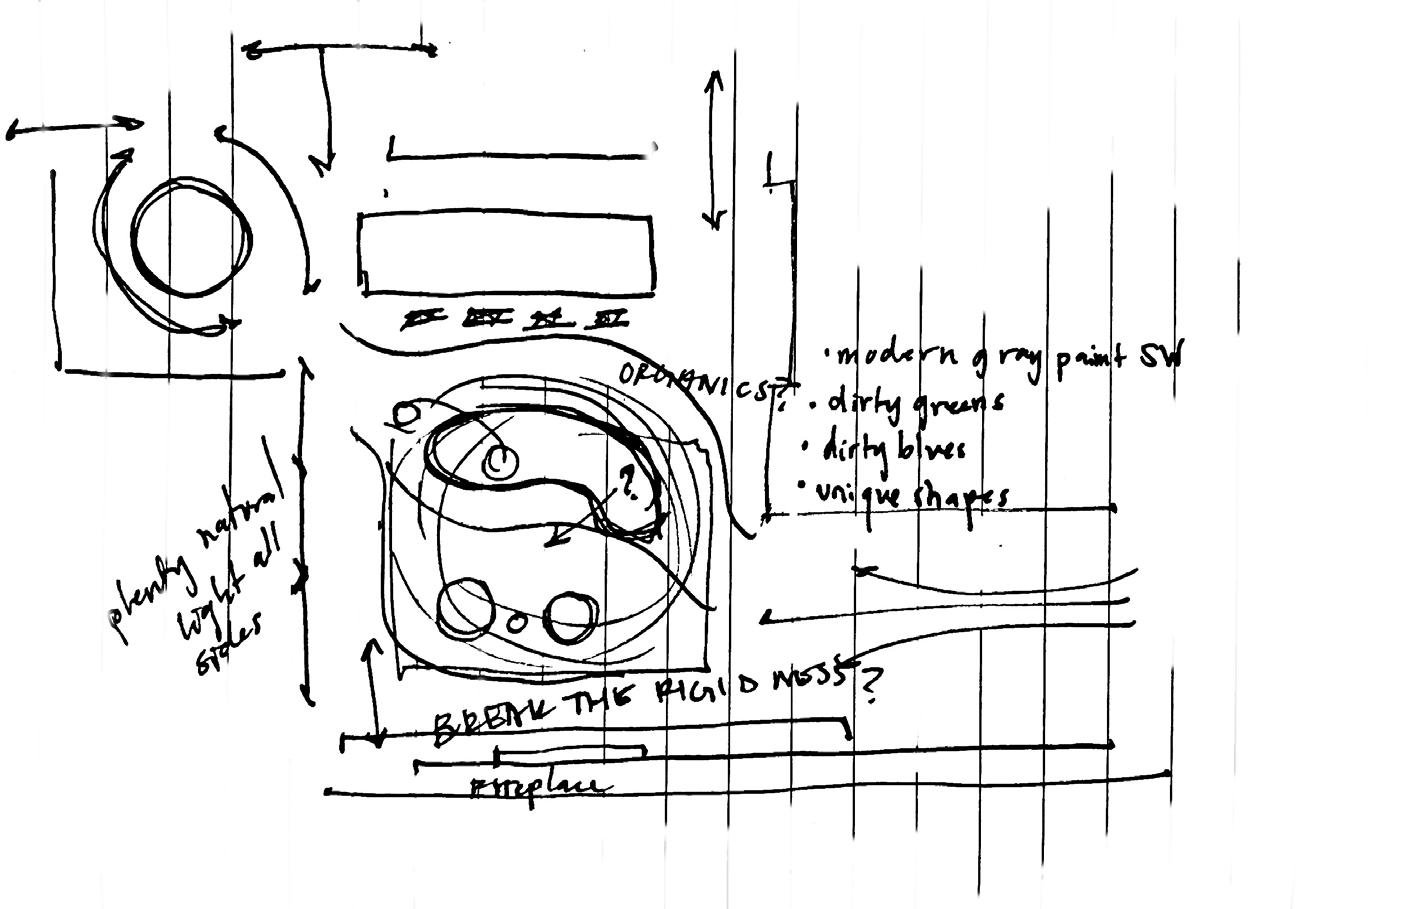 ORGANICS?
• modern gray paint SW
• dirty greens
• dirty blues
• unique shapes
?
plenty natural
light all
sides
BREAK THE RIGIDNESS?
Fireplace